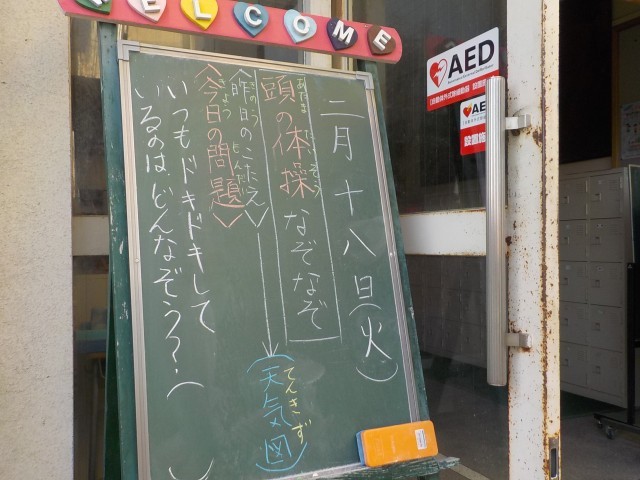 ELCOME
二月十八日(火)
頭の体操 なぞなぞ
〈昨日のこたえ〉→(天気図)
てんきず
〈今日の問題〉
いつもドキドキして
いるのは、どんなぞう?( )
AED
設置施